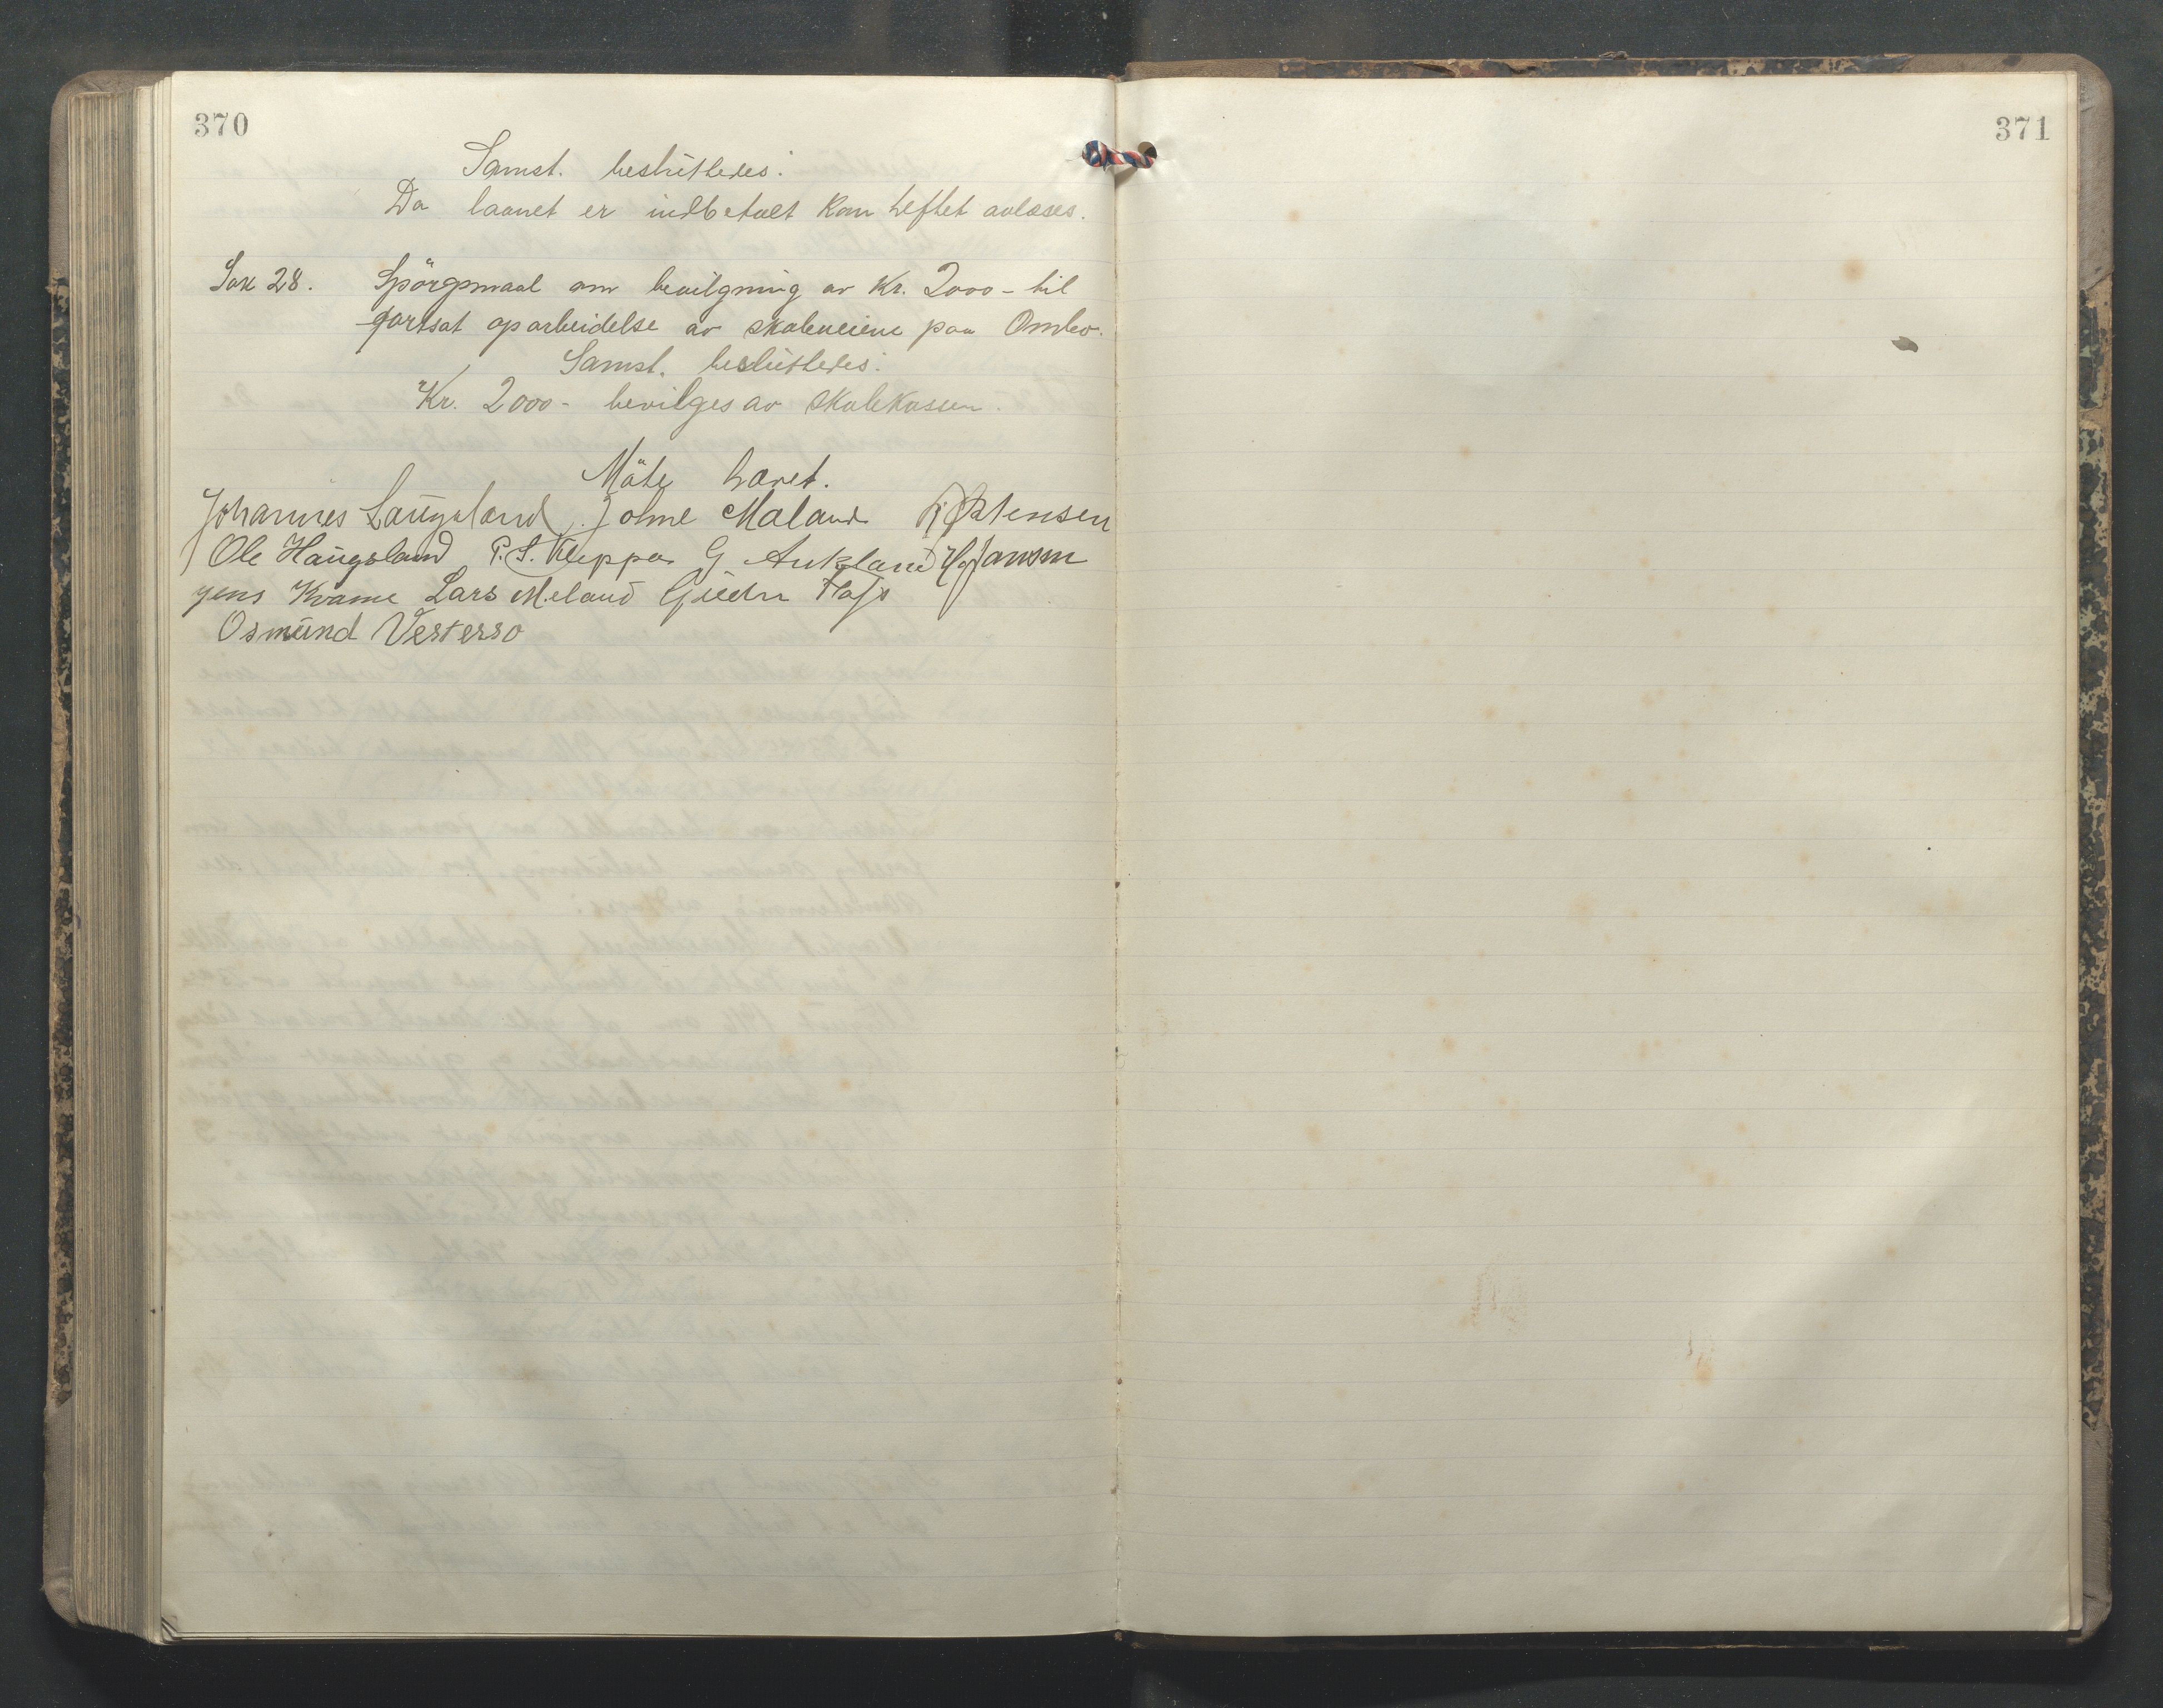 370
Samst. besluttedes:
Da laanet er indbetalt kan heftet avløses.
Sak 28. Spörgsmaal om bevilgning av Kr. 2000 - til
fortsat oparbeidelse av skoleveiene paa Ombo.
Samst. beslüttedes:
Kr. 2000 - bevilges av skolekassen.
Möte hævet.
Johannes Laugaland. Johne Maland Mortensen
Ole Haugsland P. S. Kleppa G Aukland Janson
Jens Kvame Lars Meland
Osmünd Vestersø
371